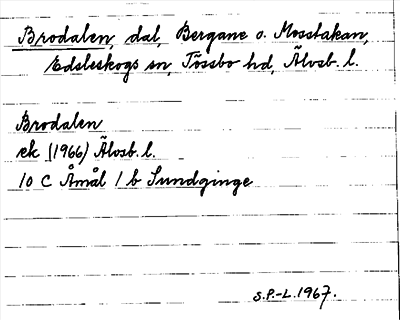 Brodalen, dal, Bergane o. Mosstakan,
Edsleskogs sn, Tössbo hd, Älvsb. l.
Brodalen
ek (1966) Älvsb. l.
10 C Åmål 1 b Sundginge
S.P.-L. 1967.